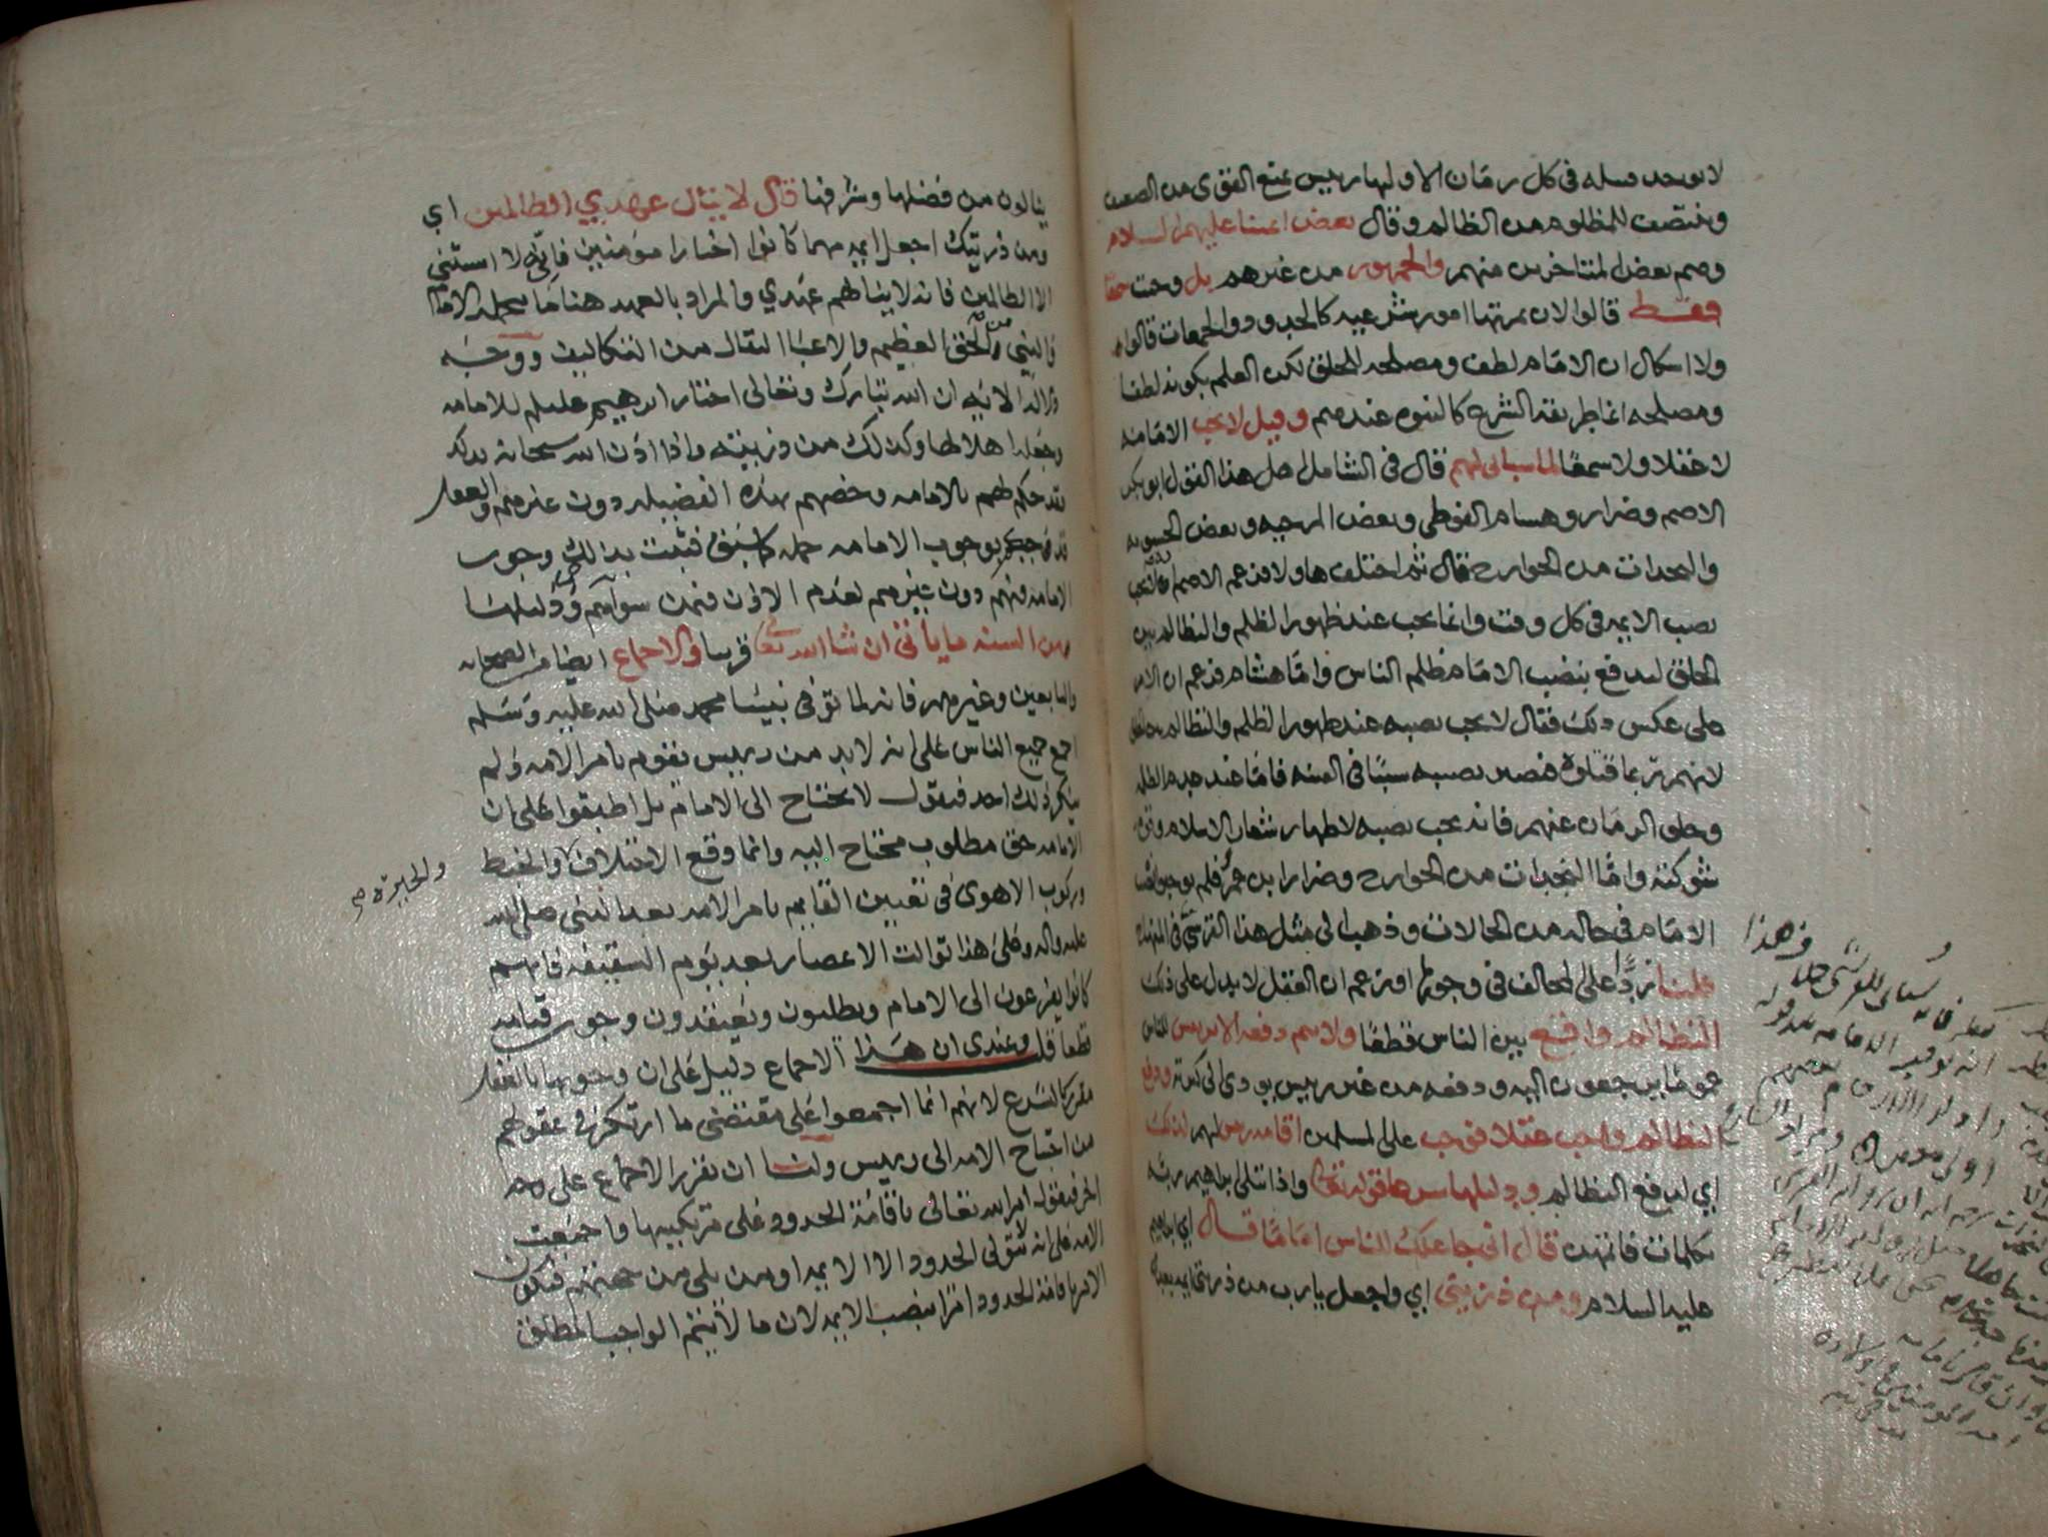 لا يوجد قبيله في كل زمان الا ولها رييس يمنع القوى من الضعيف
وينتصف للمظلوم من الظالم وقال بعض ائمتنا عليهم السلام
وهم بعض المتاخرين منهم والجمهور من غيرهم بل وجبت سمعا
فقط قالوا لان ثمرتها امور شرعيه كالحدود والجمعات قالوا
ولا اشكال ان الامام لطف ومصلحه للخلق لكن العلم بكونه لطفا
ومصلحه انما طريقه الشرع كالنبوه عندهم وقيل لا تجب الامامه
لا عقلا ولا سمعا لما سياتي لهم قال في الشامل اهل هذا القول ابو بكر
الاصم وضرار وهشام الفوطي وبعض المرجيه وبعض الحشويه
والنجدات من الخوارج قال ثم اختلف هاولا فزعم الاصم انه لا يجب
نصب الايمه في كل وقت وانما يجب عند ظهور الظلم والتظالم بين
الخلق ليدفع بنصب الامام ظلم الناس واما هشام فزعم ان الامر
على عكس ذلك فقال لا يجب نصبه عند ظهور الظلم والتظالم
لانهم ربما قتلوه فيصير نصبه سببا في الفتنه فاما عند عدم الظلم
وخلو الزمان عنهم فانه يجب نصبه لاظهار شعار الاسلام وقوة
شوكته واما النجدات من الخوارج وضرار بن عمرو فلم يوجبوا نصب
الامام في حاله من الحالات وذهب الى مثل هذا القرشي في المنهاج
قلنا ردا على المخالف في وجوبها او زعم ان العقل لا يدل على ذلك
التظالم واقع بين الناس قطعا ولا يتم دفعه الا برييس للناس
عموما يرجعون اليه ودفعه من غير رييس يودي الى كثرته ودفع
التظالم واجب عقلا فيجب على المسلمين اقامة رييس لهم لذلك
اي لدفع التظالم ودليلها سمعا قوله تعالى واذ ابتلى ابراهيم ربه
بكلمات فاتمهن قال اني جاعلك للناس اماما قال اي ابراهيم
عليه السلام ومن ذريتي اي واجعل يا رب من ذريتي ايمه يهدون
ينالون من فضلها وشرفها قال لا ينال عهدي الظالمين اي
ومن ذريتك اجعل ايمه مهما كانوا اخيارا مومنين فاني لا استثني
الا الظالمين فانه لا ينالهم عهدي والمراد بالعهد هنا ما يحمله الامام
والنبي من الحق العظيم والاعبا الثقال من التكاليف ووجه
دلالة الايه ان الله تبارك وتعالى اختار ابرهيم عليلم للامامه
وجعله اهلا لها وكذلك من ذريته واذا اذن الله سبحانه بذلك
فقد حكم لهم بالامامه وخصهم بهذه الفضيله دون غيرهم والعقل
قد حكم بوجوب الامامه جمله كما سبق فثبت بذلك وجوب
الامامه فيهم دون غيرهم لعدم الاذن فيمن سواهم ودليلها
من السنه ما ياتي ان شا الله تعالى قريبا والاجماع ايضا من الصحابه
والتابعين وغيرهم فانه لما توفي نبينا محمد صلى الله عليه وسلم
اجمع جميع الناس على انه لا بد من رييس يقوم بامر الامه ولم
ينكر ذلك احد فيقول لا نحتاج الى الامام بل اطبقوا على ان
الامامه حق مطلوب محتاج اليه وانما وقع الاختلاف والخبط
والحيرة صح
وركوب الاهوى في تعيين القايم بامر الامه بعد النبي صلى الله
عليه واله وعلى هذا توالت الاعصار بعد يوم السقيفه فانهم
كانوا يفزعون الى الامام ويطلبون ويعتقدون وجوب قيامه
قطعا قلت وعندي ان هذا الاجماع دليل على ان وجوبها بالعقل
مقرر كالشرع لانهم انما اجمعوا على مقتضى ما ارتكز في عقولهم
من احتياج الامه الى رييس ولنا ان نقرر الاجماع على وجه
اخر فنقول امر الله تعالى باقامة الحدود على مرتكبيها واجمعت
الامه على انه لا يتولى الحدود الا الايمه او من يلي من جهتهم فيكون
الامر باقامة الحدود امرا بنصب الايمه لان ما لا يتم الواجب المطلق